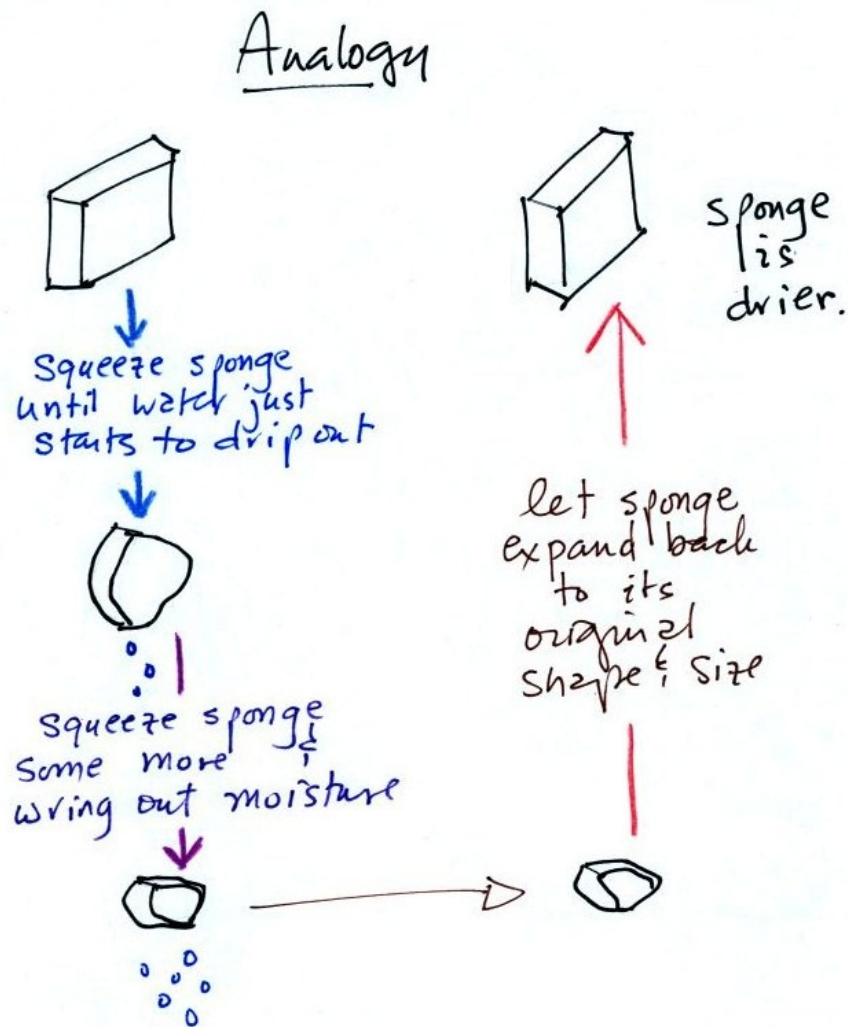 Analogy
squeeze sponge
until water just
starts to drip out
squeeze sponge &
some more
wring out moisture
let sponge
expand back
to its
original
shape & size
sponge
is
drier.